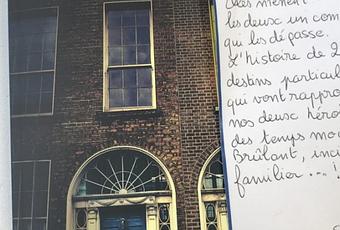 les deux un com
qui les dépasse.
L'histoire de 2
destins particul
qui vont rappro
nos deux héro
des temps mo
Brûlant, inc
familier ... !